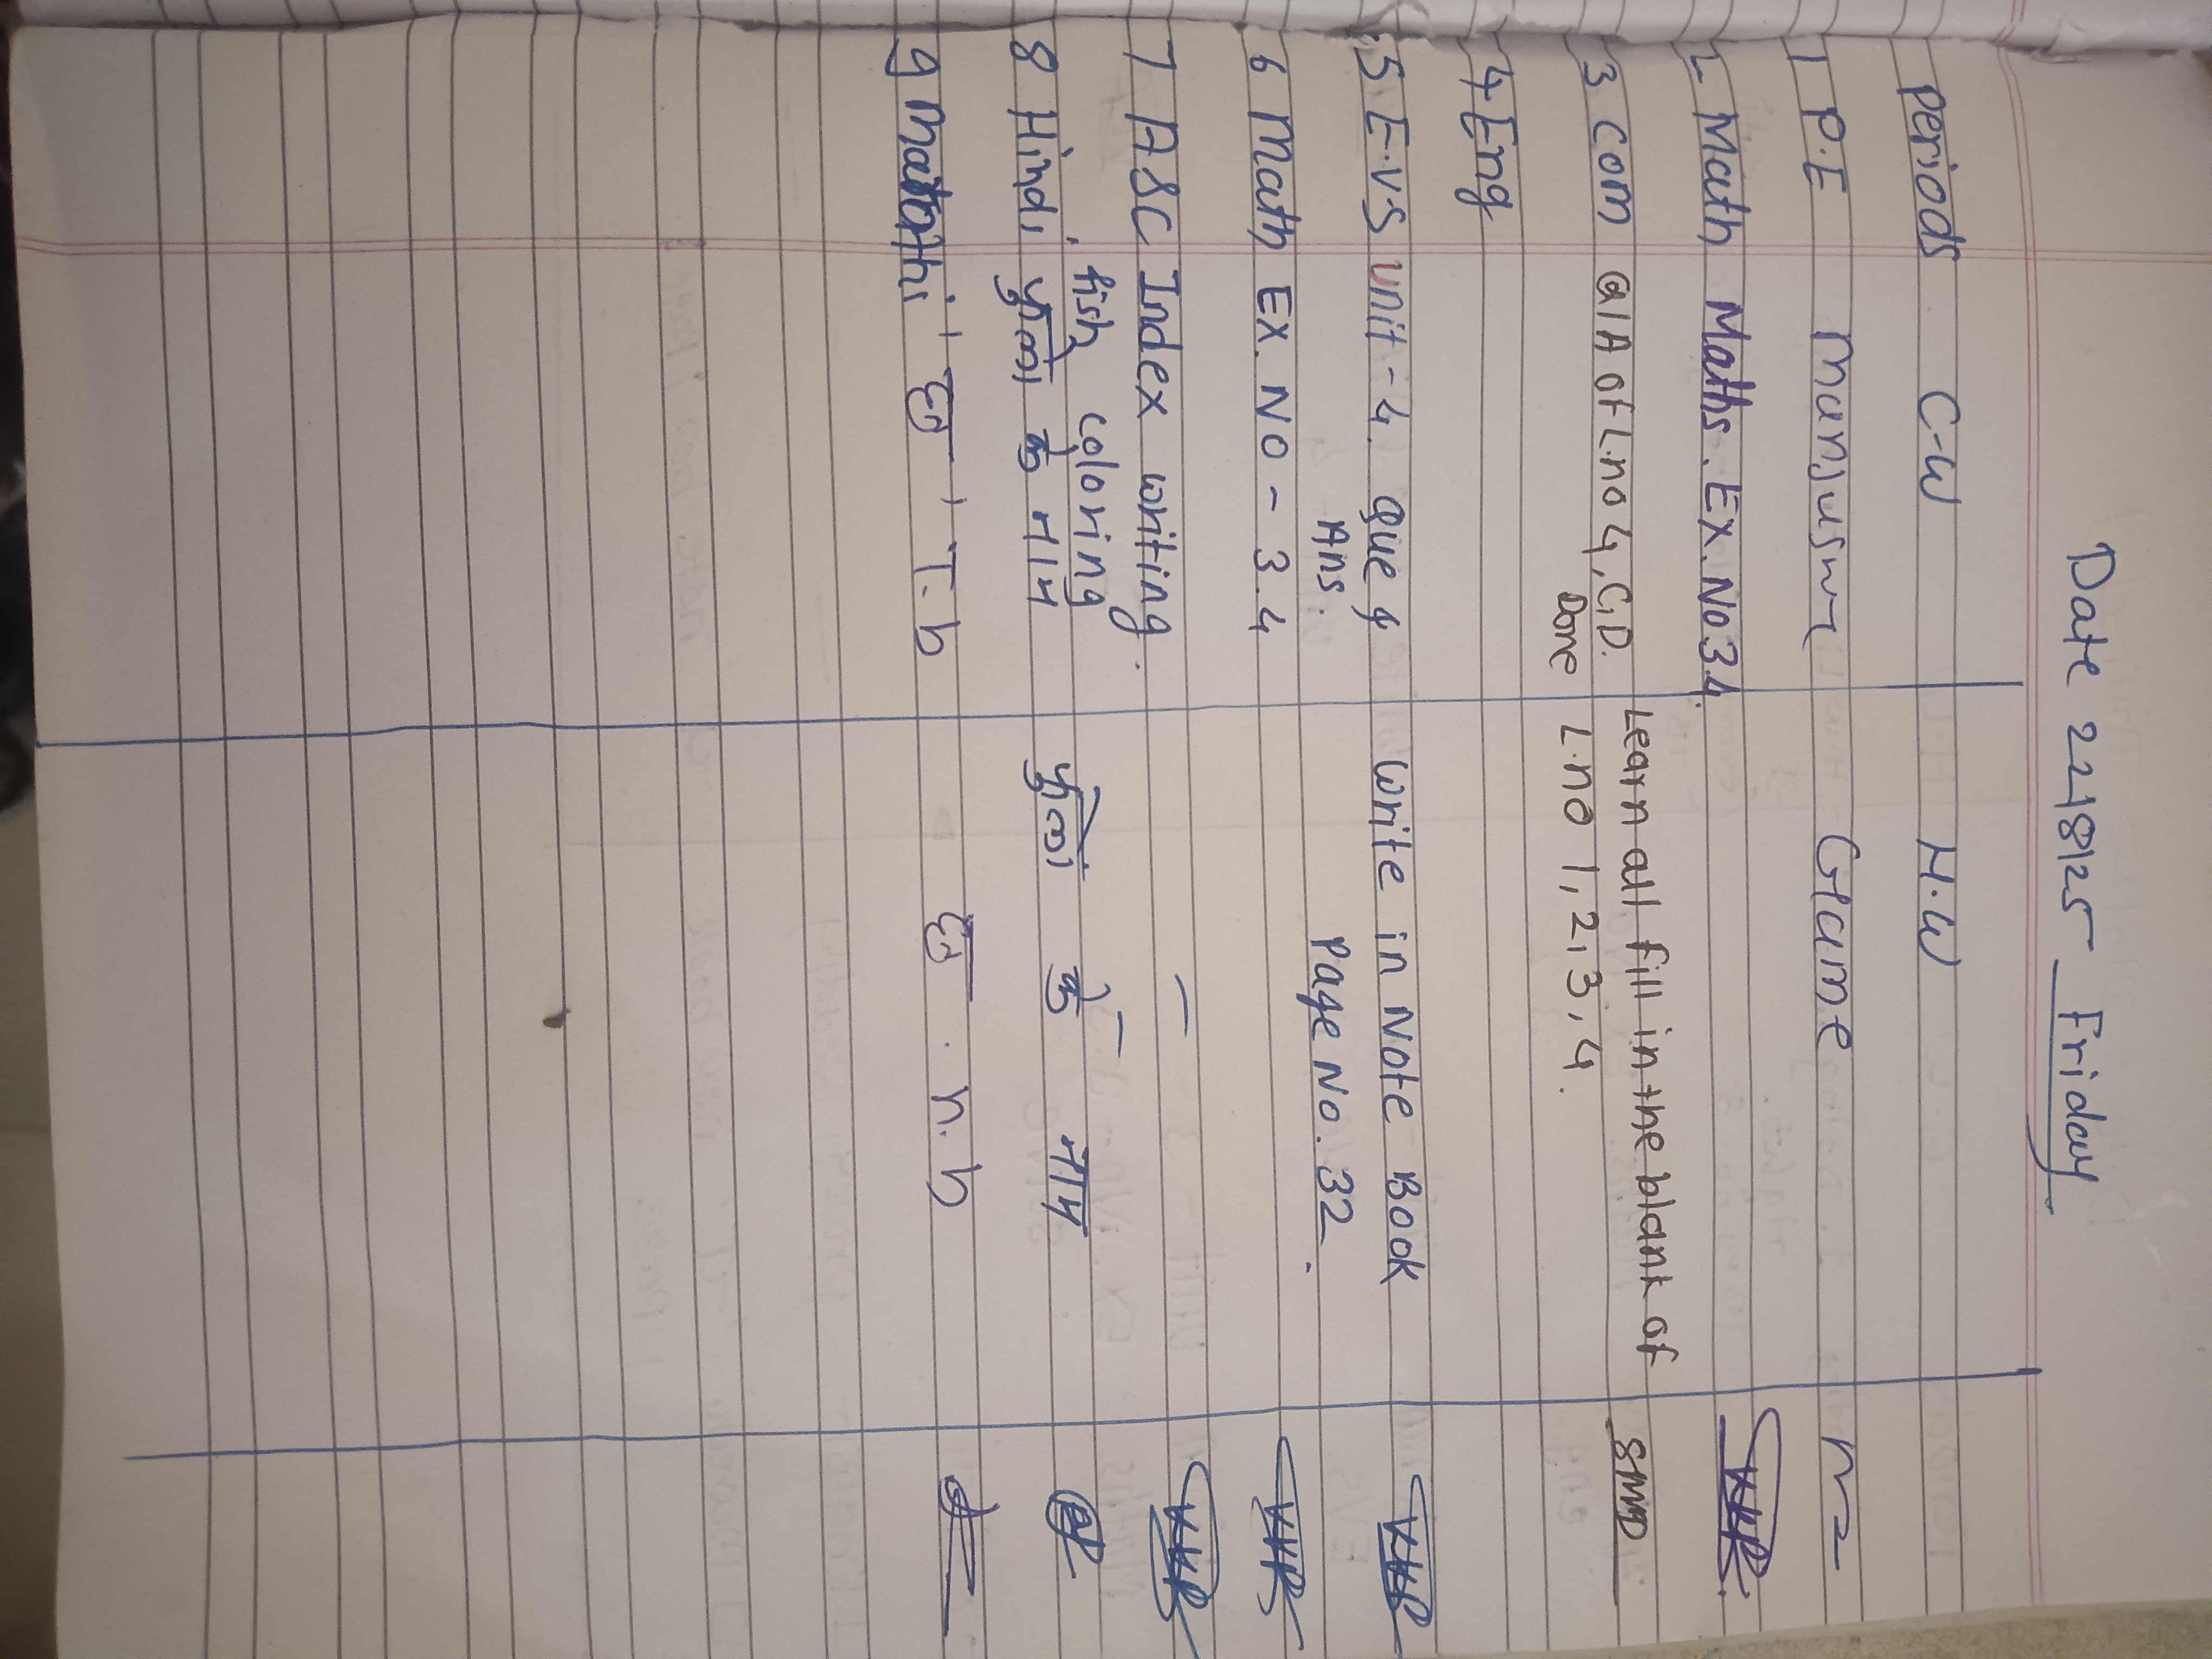 Date 22/8/25 Friday
Periods C-W H.W
1 P.E Game
2 Math Maths. EX. No.3.4.
3 Com Q1A of L.no 4, C, D. Learn all fill in the blank of SMD
Done L.no 1, 2, 3, 4.
4 Eng
5 E.V.S unit - 4. que & write in Note Book
Ans. Page No. 32.
6 Math EX. NO - 3.4
7 ASC Index writing. —
fish coloring —
8 Hindi फूलों के नाम फूलों के नाम
9 Marathi ' छ ' T. b छ . n. b